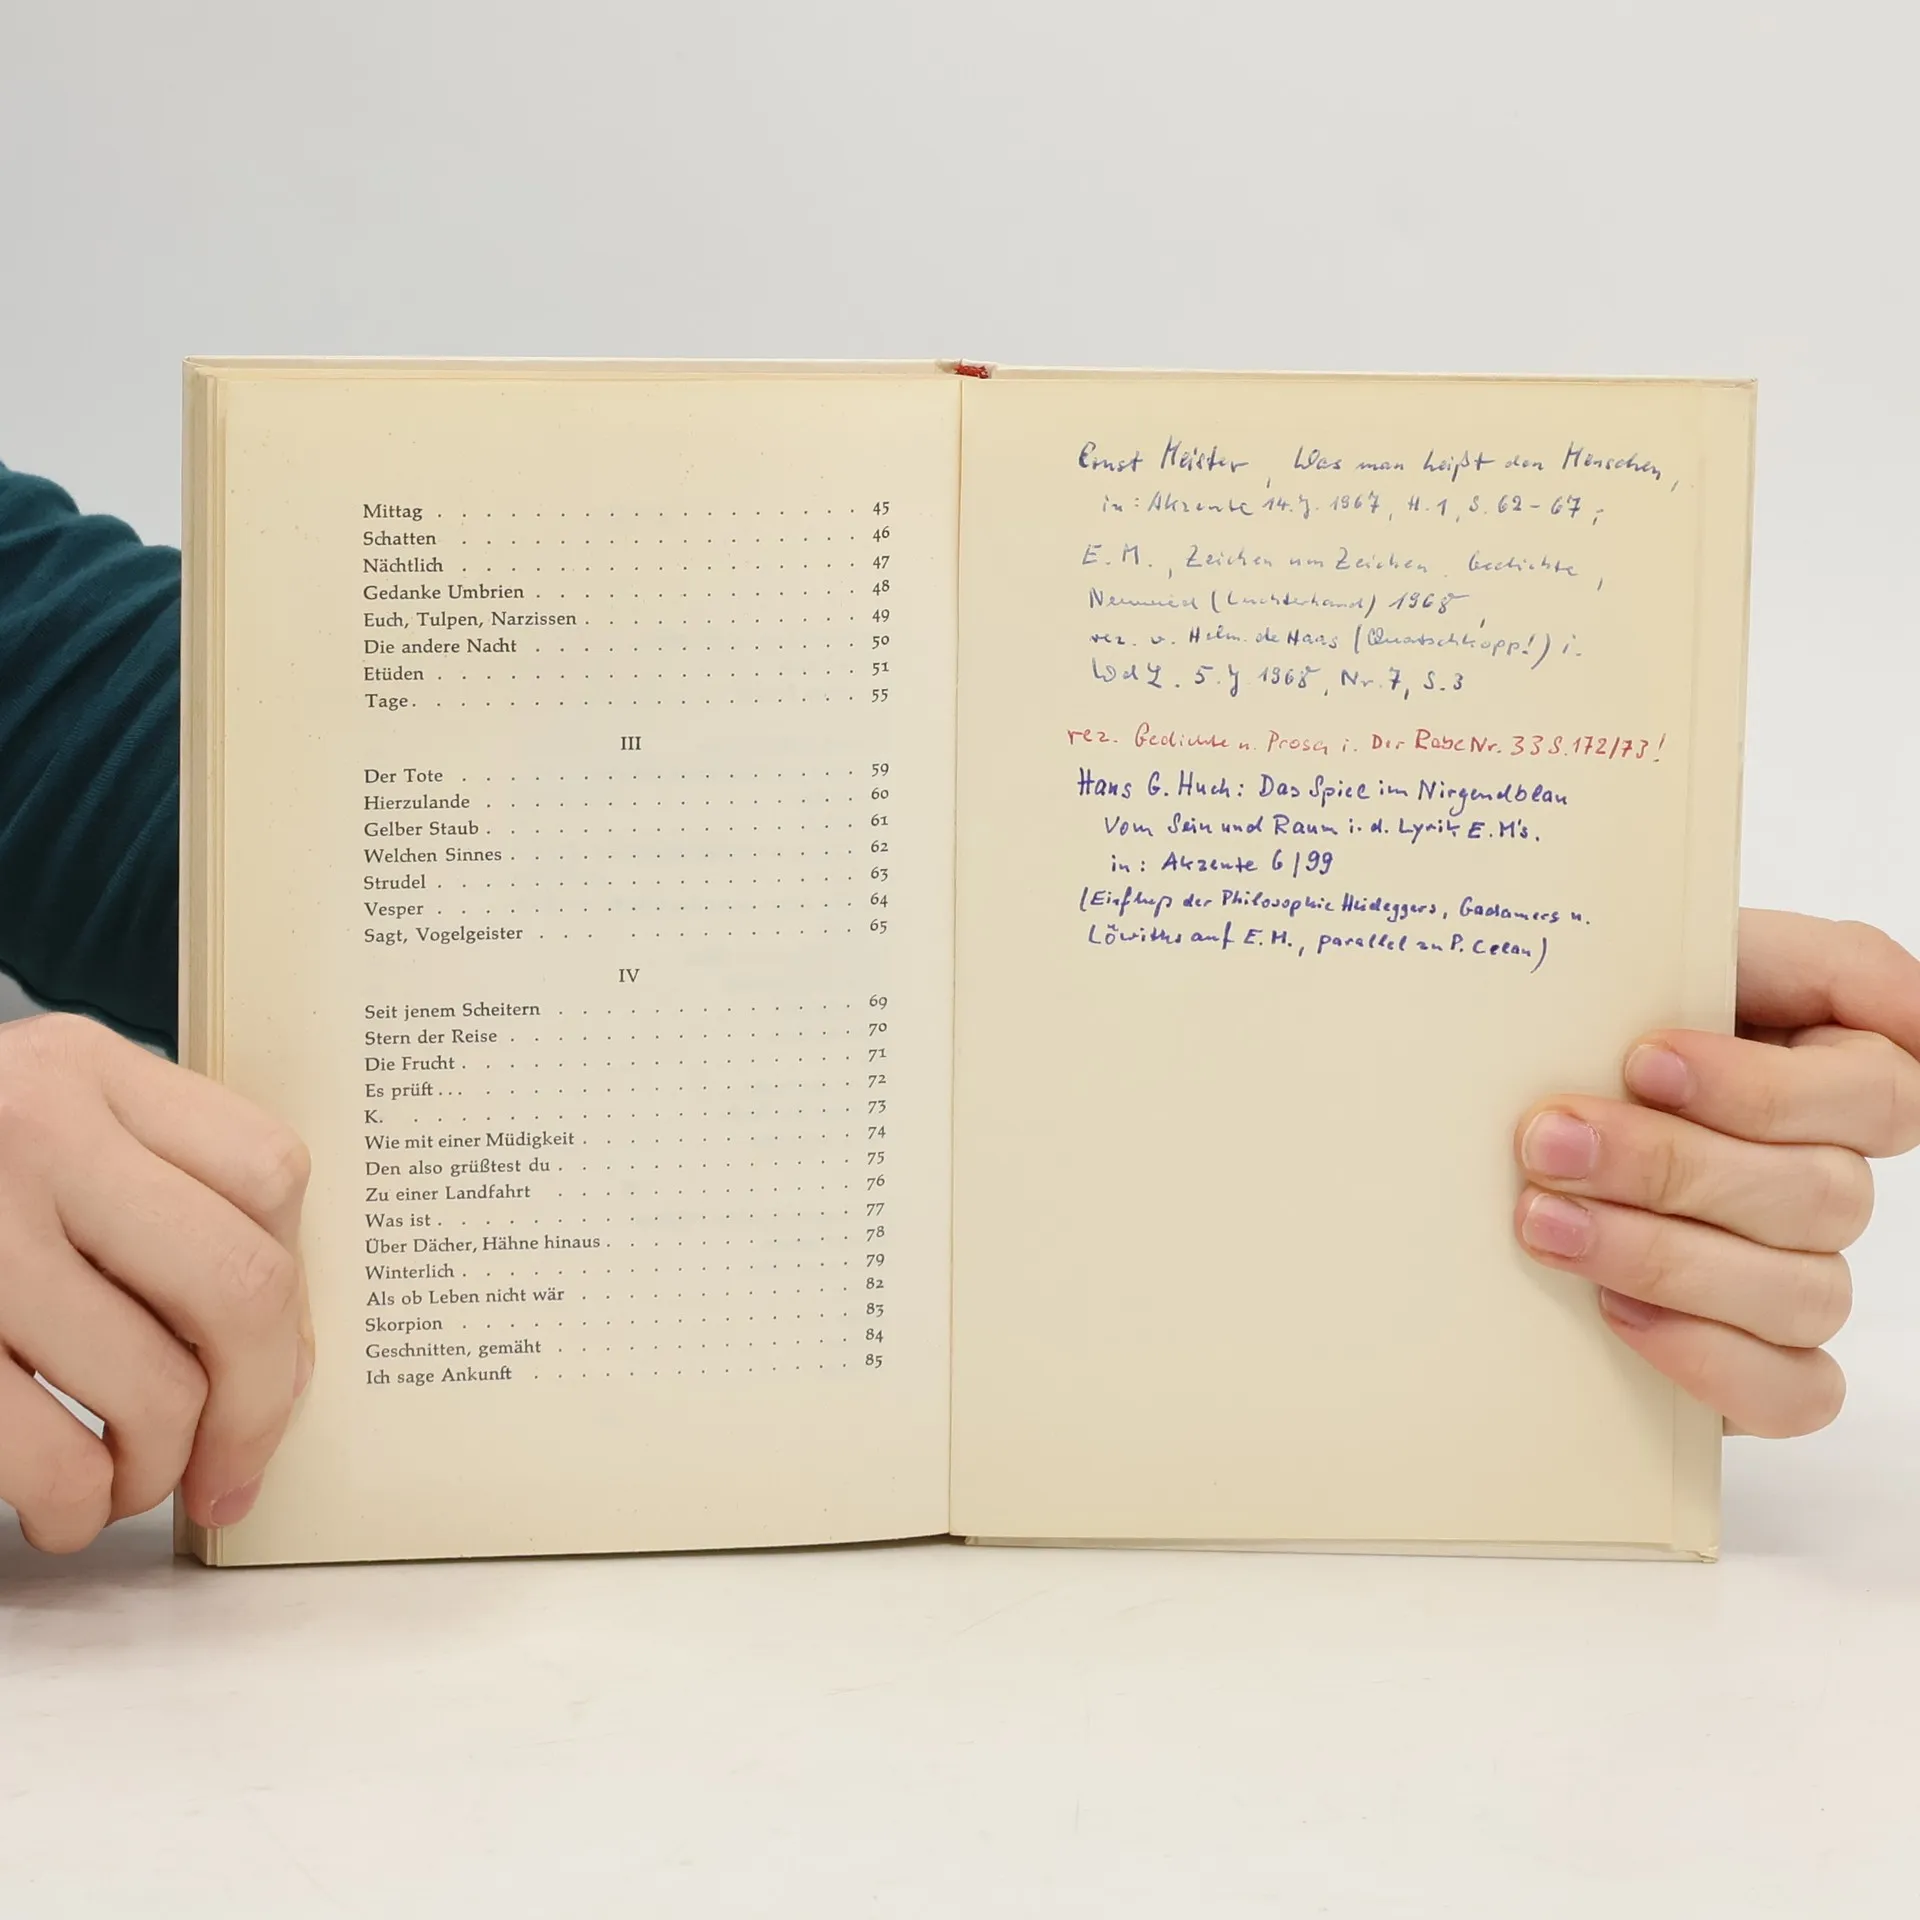 Mittag . . . . . . . . . . . . . . . . . . 45
Schatten . . . . . . . . . . . . . . . . . 46
Nächtlich . . . . . . . . . . . . . . . . . 47
Gedanke Umbrien . . . . . . . . . . . . . . 48
Euch, Tulpen, Narzissen . . . . . . . . . . . . 49
Die andere Nacht . . . . . . . . . . . . . . 50
Etüden . . . . . . . . . . . . . . . . . . 51
Tage . . . . . . . . . . . . . . . . . . . 55
III
Der Tote . . . . . . . . . . . . . . . . . 59
Hierzulande . . . . . . . . . . . . . . . . 60
Gelber Staub . . . . . . . . . . . . . . . . 61
Welchen Sinnes . . . . . . . . . . . . . . . 62
Strudel . . . . . . . . . . . . . . . . . . 63
Vesper . . . . . . . . . . . . . . . . . . 64
Sagt, Vogelgeister . . . . . . . . . . . . . 65
IV
Seit jenem Scheitern . . . . . . . . . . . . . 69
Stern der Reise . . . . . . . . . . . . . . . 70
Die Frucht . . . . . . . . . . . . . . . . . 71
Es prüft . . . . . . . . . . . . . . . . . . 72
K. . . . . . . . . . . . . . . . . . . . . 73
Wie mit einer Müdigkeit . . . . . . . . . . . . 74
Den also grüßtest du . . . . . . . . . . . . . 75
Zu einer Landfahrt . . . . . . . . . . . . . 76
Was ist . . . . . . . . . . . . . . . . . . 77
Über Dächer, Hähne hinaus . . . . . . . . . . . 78
Winterlich . . . . . . . . . . . . . . . . . 79
Als ob Leben nicht wär . . . . . . . . . . . . 82
Skorpion . . . . . . . . . . . . . . . . . 83
Geschnitten, gemäht . . . . . . . . . . . . . 84
Ich sage Ankunft . . . . . . . . . . . . . . 85
Ernst Meister, Was man heißt den Menschen,
in: Akzente 14. J. 1967, H. 1, S. 62-67;
E. M., Zeichen um Zeichen. Gedichte,
Neuwied (Luchterhand) 1968,
rez. v. Helm. de Haas (Quatschkopp!) i.
WdL. 5. J 1968, Nr. 7, S. 3
rez. Gedichte u. Prosa i. Der Rabe Nr. 33 S. 172/73!
Hans G. Huch: Das Spiel im Nirgendblau
Vom Sein und Raum i. d. Lyrik E. M's.
in: Akzente 6/99
(Einfluß der Philosophie Heideggers, Gadamers u.
Löwiths auf E. M., parallel zu P. Celan)